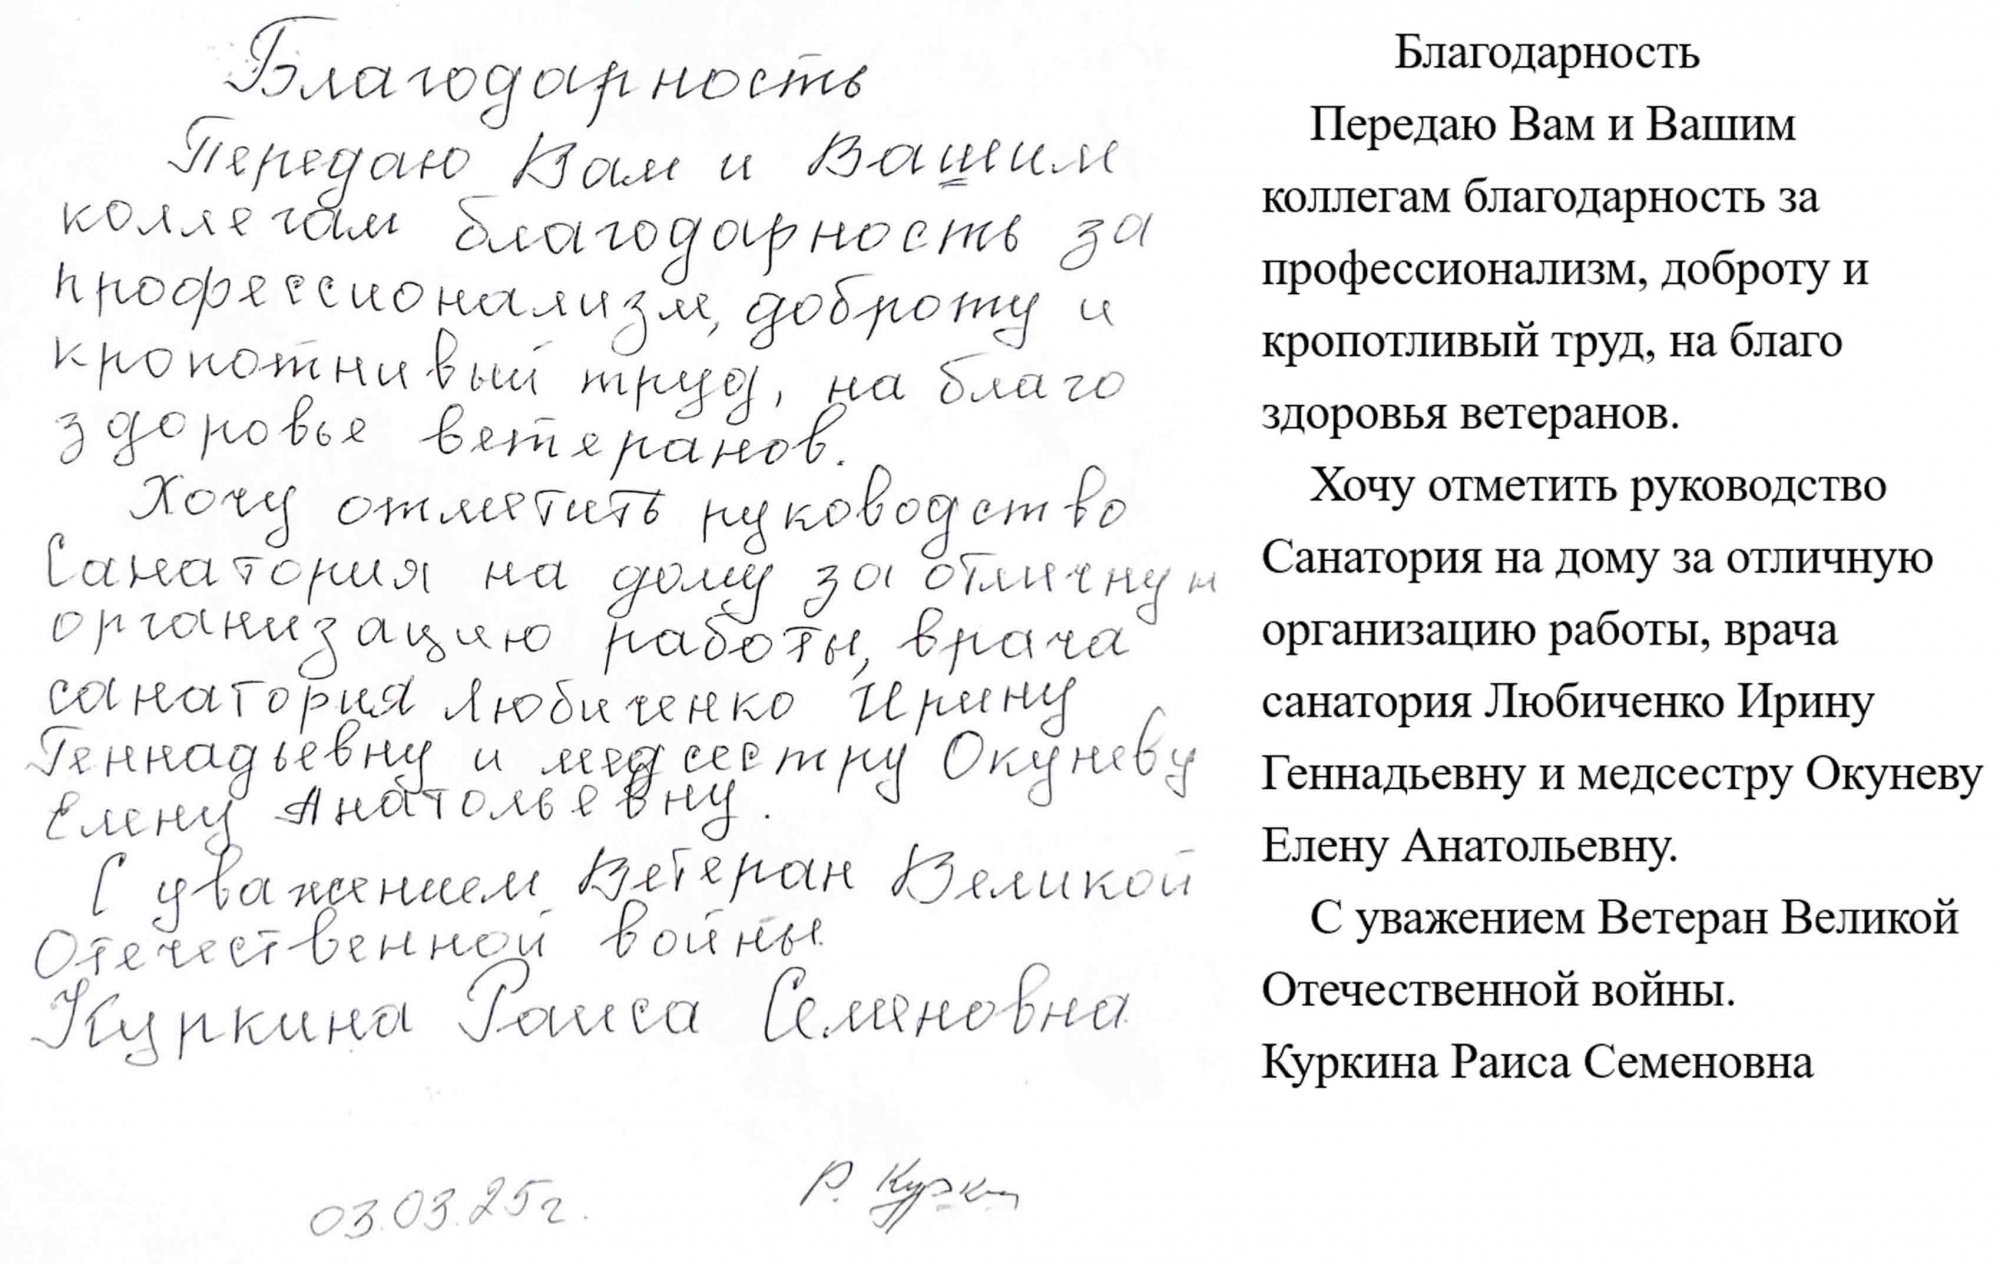 Благодарность
Передаю Вам и Вашим
коллегам благодарность за
профессионализм, доброту и
кропотнивый труд, на благо
здоровье ветеранов.
Хочу отметить руководство
Санатория на дому за отличную
организацию работы, врача
санатория Любиченко Ирину
Геннадьевну и медсестру Окуневу
Елену Анатольевну.
С уважением Ветеран Великой
Отечественной войны
Куркина Раиса Семеновна
03.03.25г.
Р. Курк
Благодарность
Передаю Вам и Вашим
коллегам благодарность за
профессионализм, доброту и
кропотливый труд, на благо
здоровья ветеранов.
Хочу отметить руководство
Санатория на дому за отличную
организацию работы, врача
санатория Любиченко Ирину
Геннадьевну и медсестру Окуневу
Елену Анатольевну.
С уважением Ветеран Великой
Отечественной войны.
Куркина Раиса Семеновна